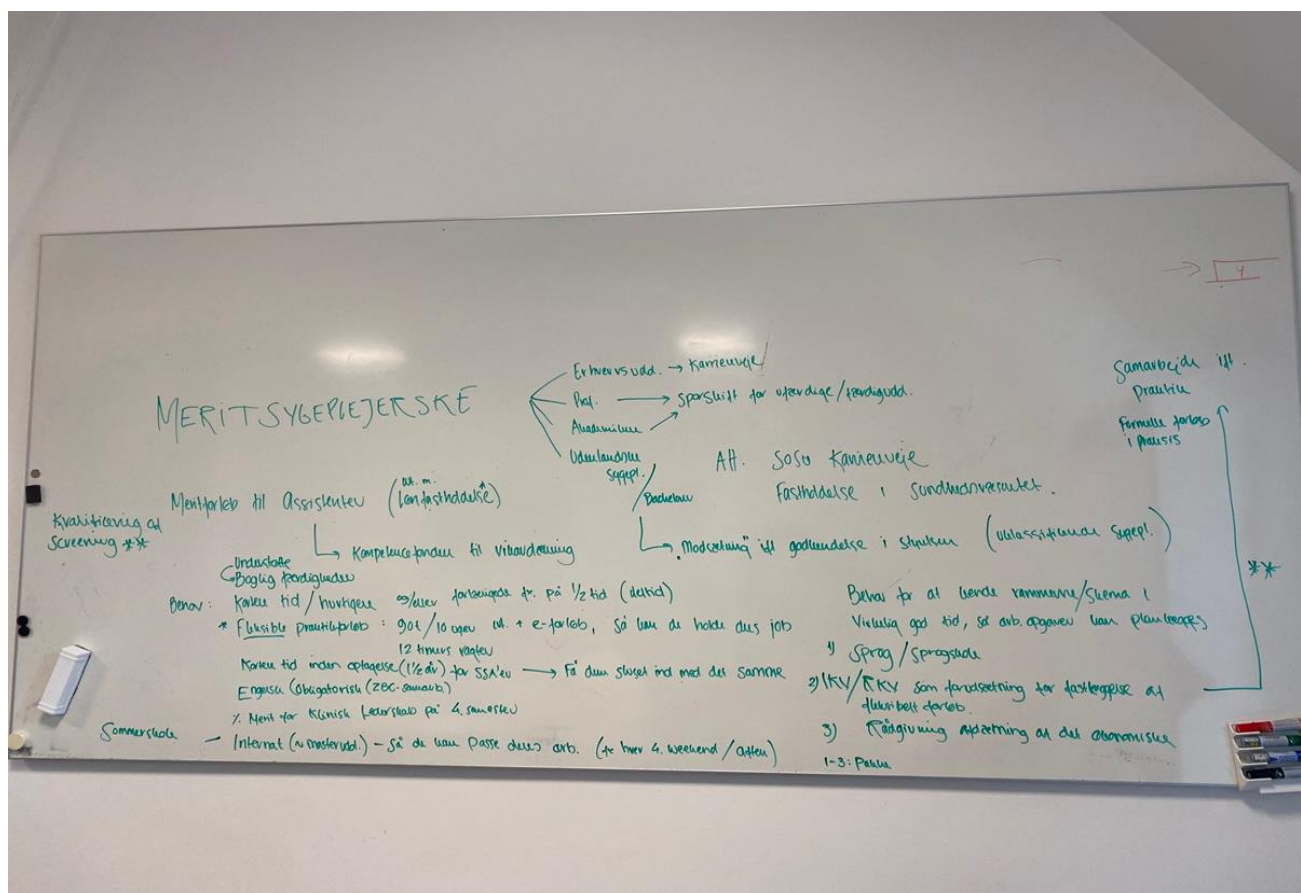 4
MERITSYGEPLEJERSKE
Erhvervsudd. → Karriereveje
Prof. → Sporskift for ufærdige/færdigudd.
Akademikere
Udenlandske
sygepl.
/Bachelor
Samarbejde ift.
praktik
Formelle forløb
i praksis
Att. SOSU Karriereveje
Fastholdelse i Sundhedsvæsenet.
Meritforløb til Assistenter (løn fastholdelse)
Kvalificering af
screening **
Kompetencefonden til vikardækning
"Modsætning" ift godkendelse i styrelsen ( sygepl.)
Understøtte
Boglig færdigheder
Behov: Kortere tid/hurtigere og/eller forlængede fx. på 1/2 tid (deltid)
* Fleksible praktikforløb: 90t/10 uger + e-forløb, så kan de holde deres job
12 timers vagter
Kortere tid inden optagelse (1 1/2 år) for SSA'er → Få dem sluset ind med det samme
Engelsk Obligatorisk (ZBC-samarb.)
% Merit for Klinisk Lederskab på 4. semester
Sommerskole
– Internat (~ masterudd.) – så de kan passe deres arb. (fx hver 4. weekend/aften)
Behov for at kende rammerne/skema i
Virkelig god tid, så arb. opgaven kan planlægges
1) Sprog/Sprogskole
2) IKV/RKV som forudsætning for fastlæggelse af
fleksibelt forløb.
3) Rådgivning afdækning af det økonomiske
1-3: Pakke
**